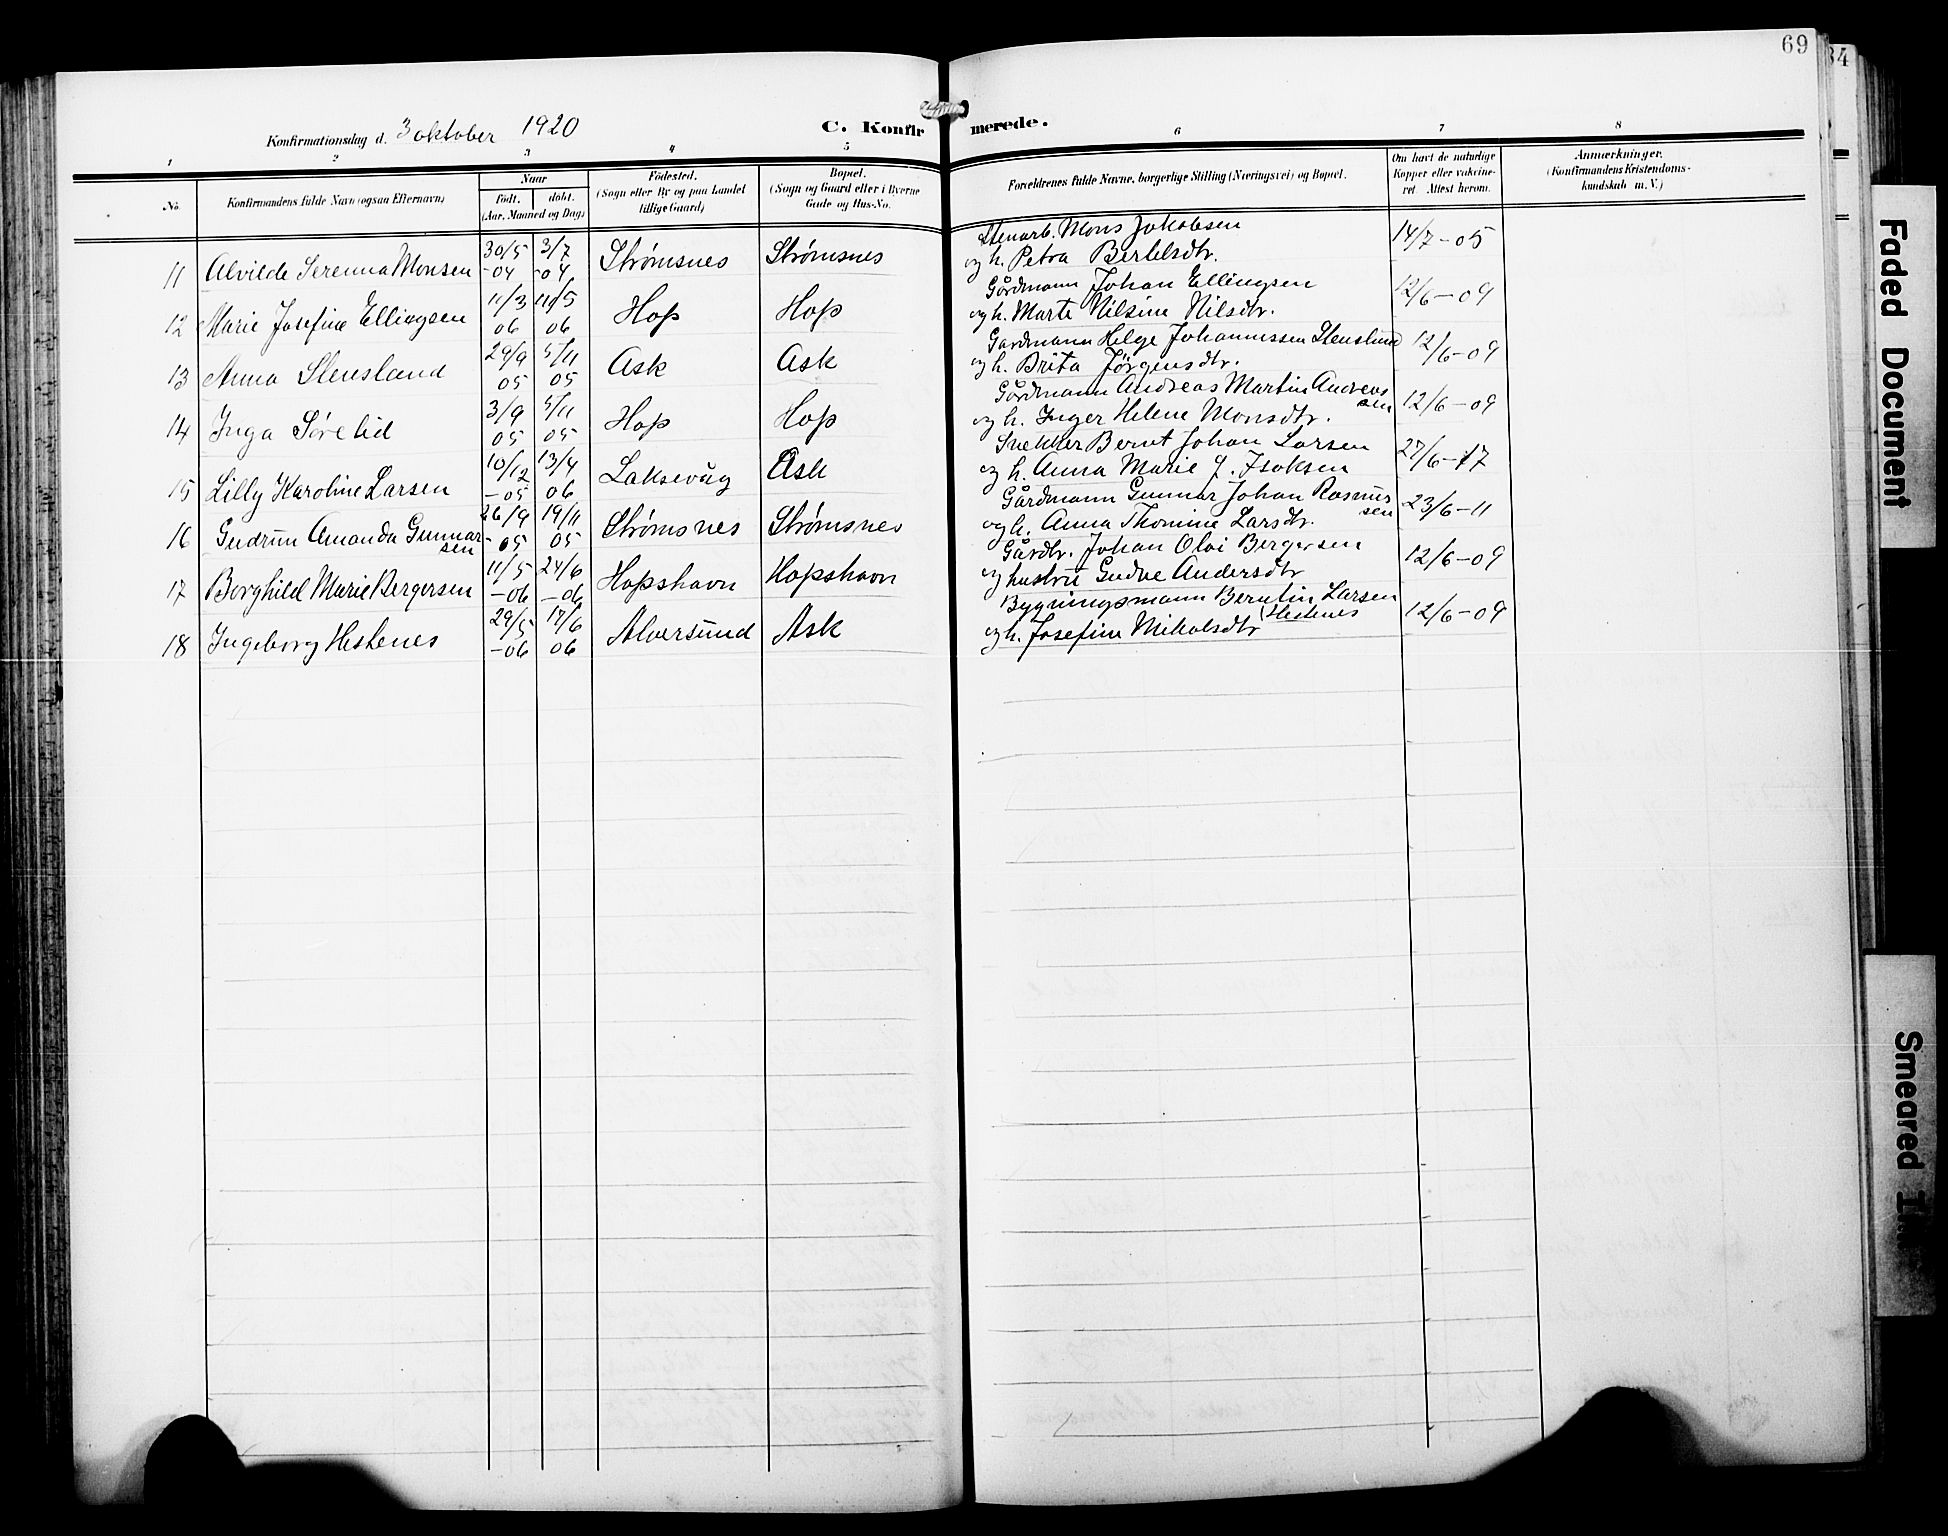 69
84
Konfirmationsdag d. 3 oktober 1920
C. Konfirmerede.
1 2 3 4 5 6 7 8
No.
Konfirmandens fulde Navn (ogsaa Efternavn)
Naar
födt. döbt.
(Aar, Maaned og Dag)
Födested.
(Sogn eller By og paa Landet
tillige Gaard)
Bopæl.
(Sogn og Gaard eller i Byerne
Gade og Hus-No.
Forældrenes fulde Navne, borgerlige Stilling (Næringsvei) og Bopæl.
Om havt de naturlige
Kopper eller vakcine-
ret. Attest herom.
Anmærkninger.
(Konfirmandens Kristendoms-
kundskab m. V.)
11 Alvilde Serenna Monsen 30/5 -04 3/7 -04 Strømsnes Strømsnes Stenarb. Mons Jakobsen
og h. Petra Bertelsdtr. 14/7-05
12 Marie Josefine Ellingsen 11/3 06 11/5 06 Hop Hop Gårdmann Johan Ellingsen
og h. Marte Nilsine Nilsdtr. 12/6-09
13 Anna Stensland 29/9 05 5/11 05 Ask Ask Gårdmann Helge Johannessen Stensland
og h. Brita Jørgensdtr. 12/6-09
14 Inga Sørelid 3/9 05 5/11 05 Hop Hop Gårdmann Andreas Martin Andreas
sen
og h. Inger Helene Monsdtr. 12/6-09
15 Lilly Karoline Larsen 10/12 -05 13/4 06 Laksevåg Ask Snekker Bernt Johan Larsen
og h. Anna Marie J. Isaksen 27/6-17
16 Gudrun Amanda Gunnar
sen 26/9 -05 19/11 05 Strømsnes Strømsnes Gårdmann Gunnar Johan Rasmus
sen
og h. Anna Thomine Larsdtr. 23/6-11
17 Borghild Marie Bergersen 11/5 -06 24/6 -06 Hopshavn Hopshavn Gårdbr. Johan Olai Bergersen
og hustru Gudve Andersdtr 12/6-09
18 Ingeborg Hestenes 29/5 -06 17/6 06 Alversund Ask Bygningsmann Berntin Larsen
Hestenes
og h. Josefine Mikalsdtr 12/6-09
Faded Document
Smeared